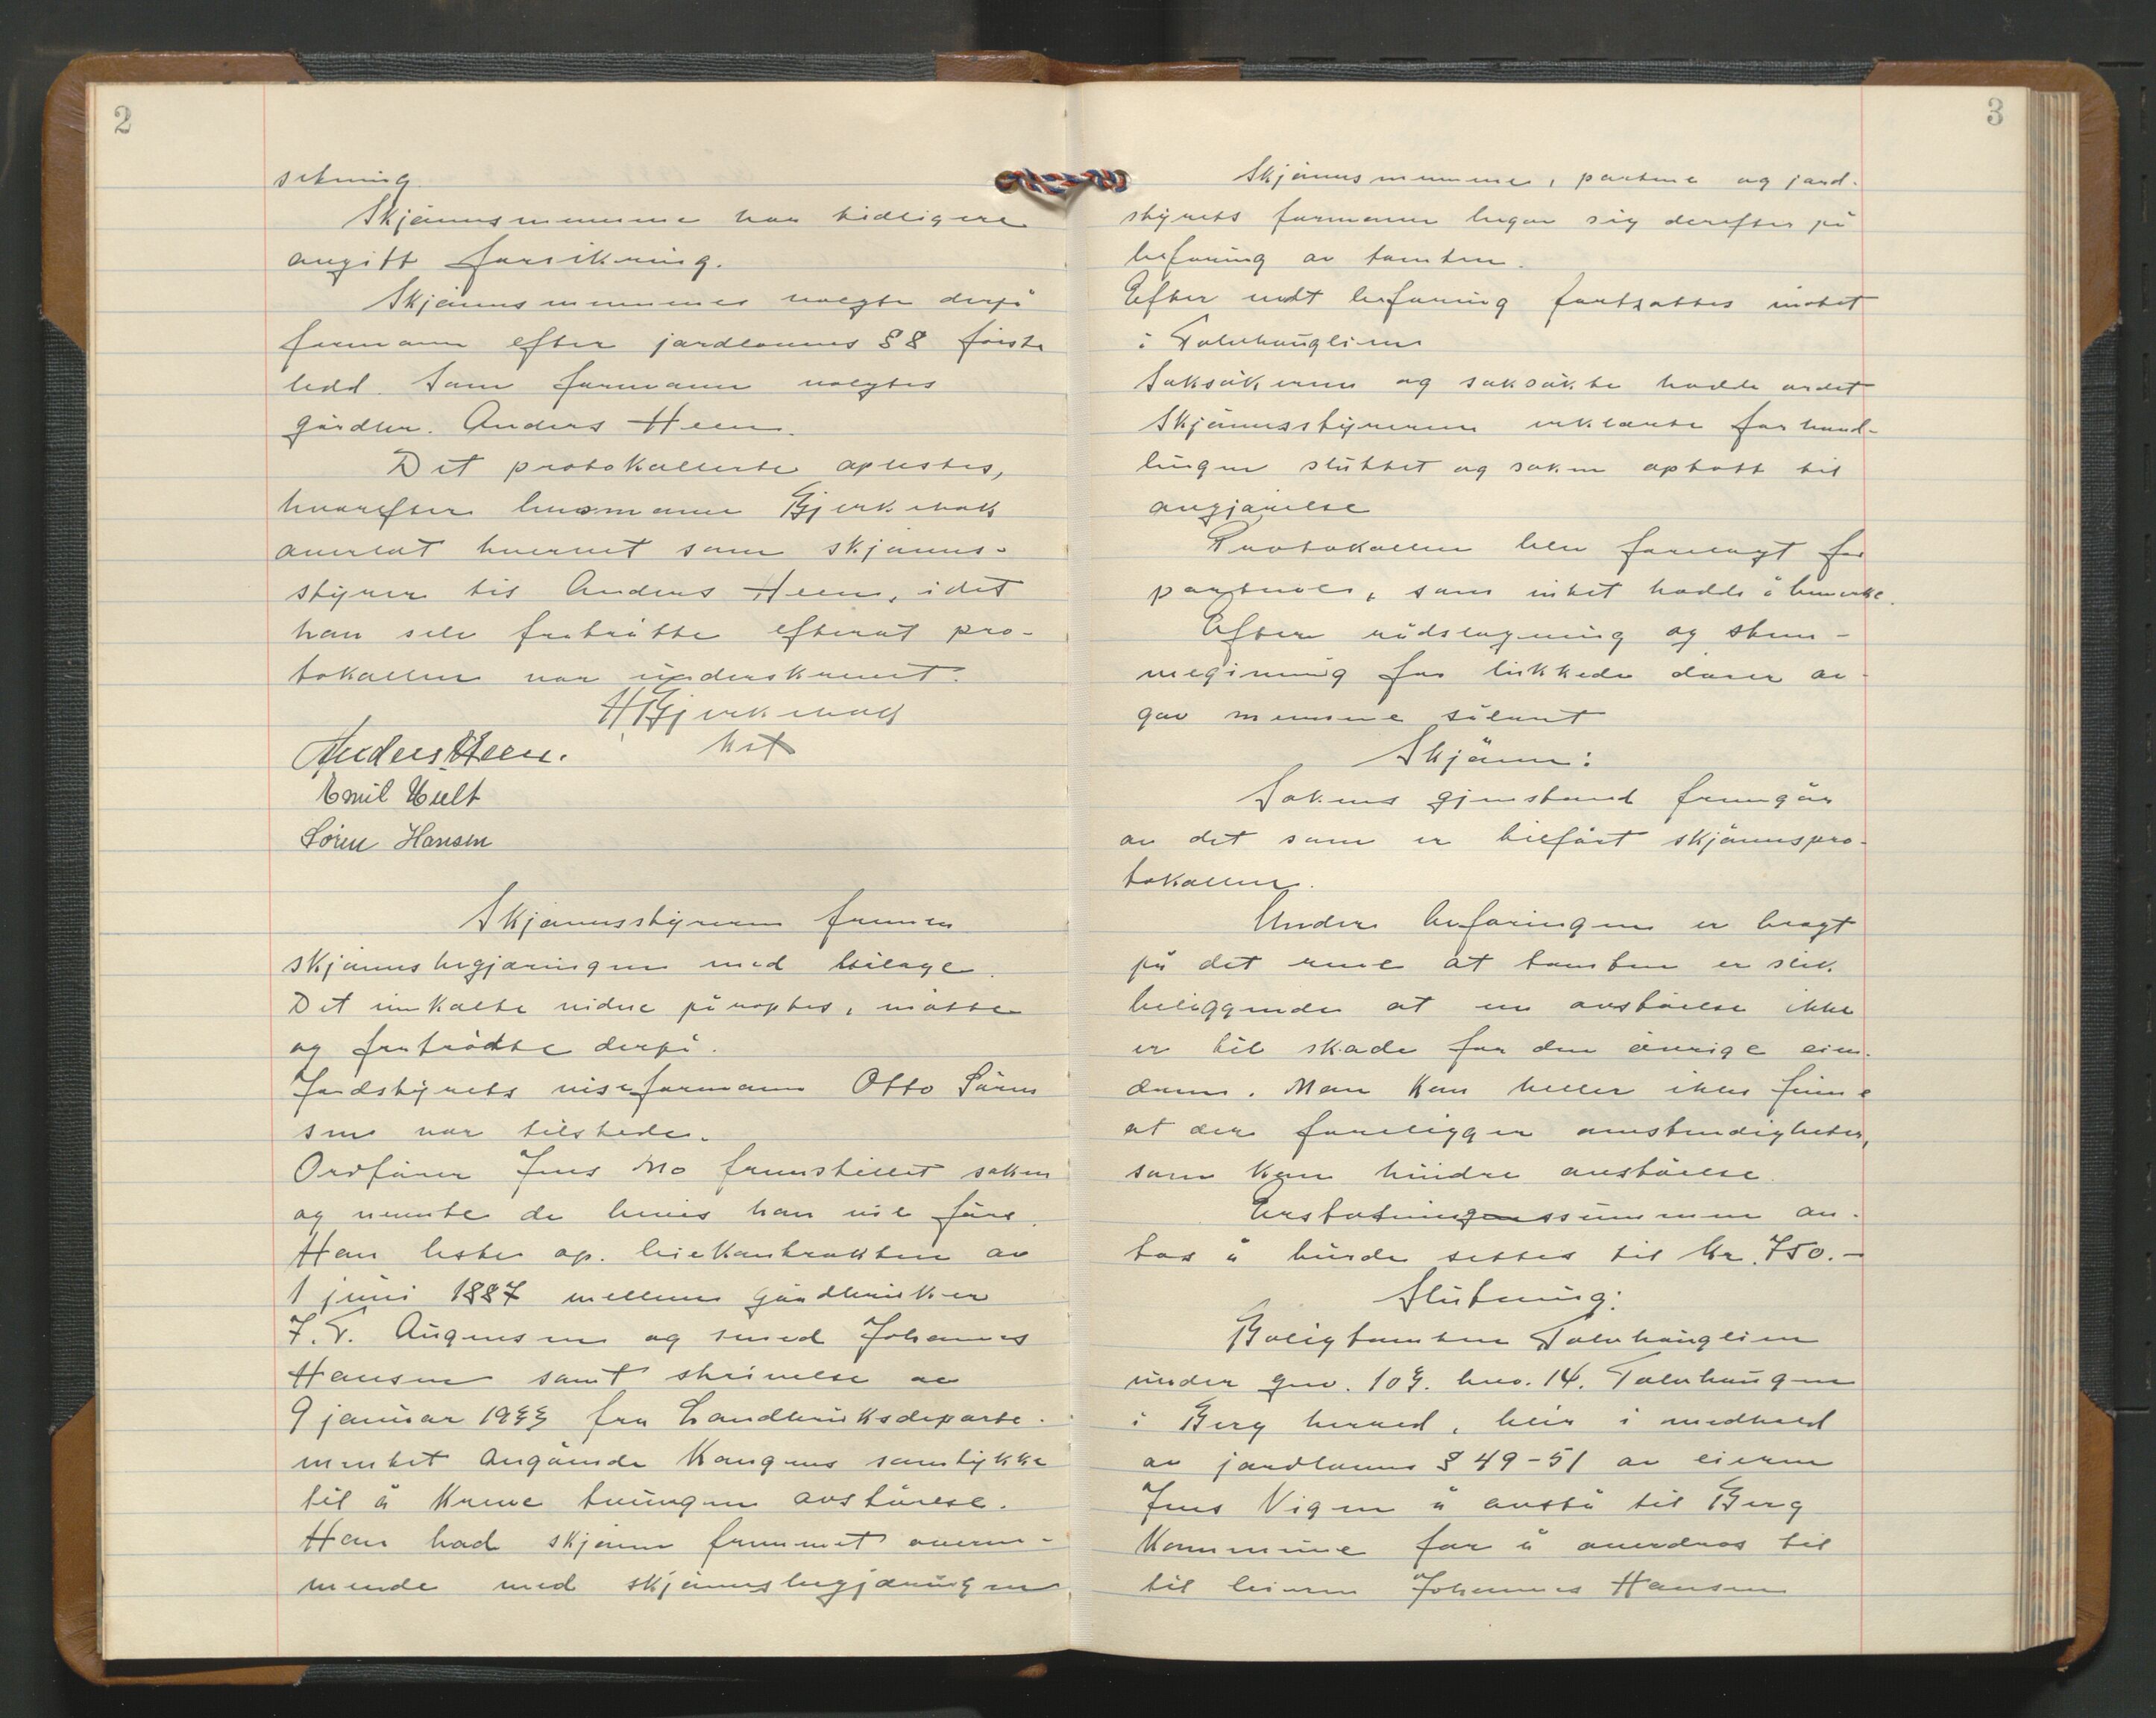 2
setning
Skjønnsmennene har tidligere
avgitt forsikring.
Skjønnsmennene valgte derpå
formann efter jordlovens § 8 første
ledd. Som formann valgtes
gårdbr. Anders Heen.
Det protokollerte oplestes,
hvorefter lensmann Bjerkebæk
overlot hvervet som skjønns-
styrer til Anders Heen, idet
han selv fratrådte efterat pro-
tokollen var underskrevet.
H Bjerkebæk
Anders Heen.
Emil Hult
Søren Hansen
Skjønnsstyreren fremla
skjønnsbegjæringen med bilage.
Det innkalte vidne påroptes, møtte
og fratrådte derpå.
Jordstyrets viseformann Otto Søren
sen var tilstede.
Ordfører Jens Mo fremstillet saken
og nevnte de bevis han vil føre.
Han leste op leiekontrakten av
1 juni 1887 mellem gårdbruker
J. T. Augensen og smed Johannes
Hansen samt skrivelse av
9 januar 1933 fra Landbruksdeparte-
mentet angående Kongens samtykke
til å kreve tvungen avståelse.
Han bad skjønn fremmet overens-
mende med skjønnsbegjæringen
3
Skjønnsmennene, partene og jord-
styrets formann begav sig derefter på
befaring av tomten.
Efter endt befaring fortsattes møtet
i Tolvhauglien
Saksøkeren og saksøkte hadde ordet
Skjønnsstyreren erklærte forhand-
lingen sluttet og saken optatt til
avgjørelse
Protokollen blev forelagt for
partene, som intet hadde å bemerke.
Efter rådslagning og stem-
megivning for lukkede dører av-
gav mennene sålydt
Skjønn:
Sakens gjenstand fremgår
av det som er tilført skjønnspro-
tokollen.
Under befaringen er bragt
på det rene at tomten er slik
beliggende at en avståelse ikke
er til skade for den øvrige eien-
dom. Man kan heller ikke finne
at der foreligger omstendigheter,
som kan hindre avståelse.
Erstatningssummen an-
tas å burde settes til kr. 750.-
Slutning:
Boligtomten Tolvhauglien
under gnr. 103. bnr. 14. Tolvhaugen
i Berg herred, blir i medhold
av jordlovens § 49-51 av eieren
Jens Vigen å avstå til Berg
Kommune for å overdras til
til leieren Johannes Hansen